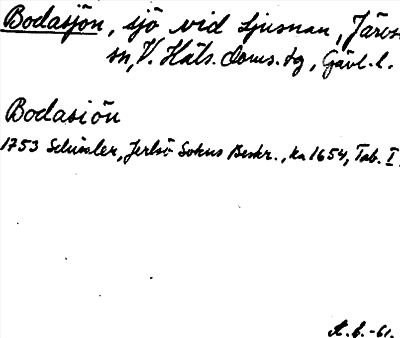 Bodasjön, sjö vid Ljusnan, Järvsö
sn, V. Häls. doms. dg, Gävl. l.
Bodasiön
1753 Schissler, Jerlsö Sokns Beskr., ka 1654, Tab. I.
-61.